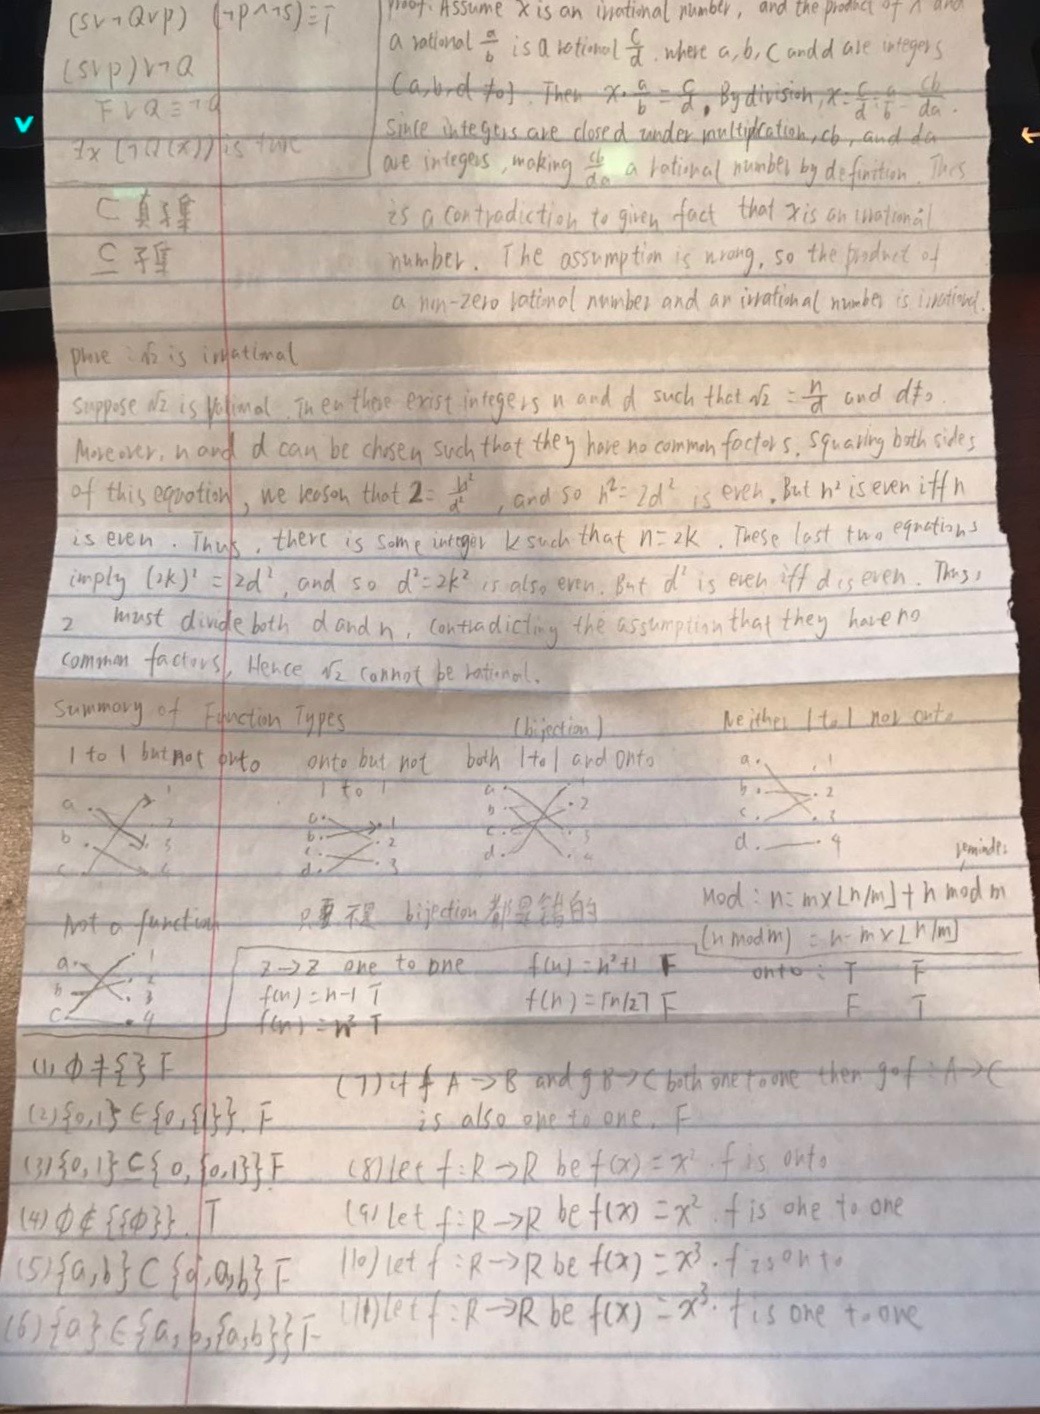 (SV¬QVP) (¬P∧¬S)≡T
(SVP)V¬Q
FVQ≡¬Q
∀x (¬D(x)) is true
⊂ 真子集
⊆ 子集
proof. Assume x is an irrational number, and the product of x and
a rational a/b is a rational c/d, where a, b, c and d are integers
(a,b,d≠0). Then x·a/b = c/d. By division, x = c/d ÷ a/b = cb/da.
Since integers are closed under multiplication, cb, and da
are integers, making cb/da a rational number by definition. This
is a contradiction to given fact that x is an irrational
number. The assumption is wrong, so the product of
a non-zero rational number and an irrational number is irrational.
prove : √2 is irrational
Suppose √2 is rational. Then there exist integers n and d such that √2 = n/d and d≠0.
Moreover, n and d can be chosen such that they have no common factors. Squaring both sides
of this equation, we reason that 2 = n²/d², and so n² = 2d² is even. But n² is even iff n
is even. Thus, there is some integer k such that n = 2k. These last two equations
imply (2k)² = 2d², and so d² = 2k² is also even. But d² is even iff d is even. Thus,
2 must divide both d and n, contradicting the assumption that they have no
common factors, Hence √2 cannot be rational.
Summary of Function Types (bijection) Neither 1 to 1 nor onto
1 to 1 but not onto onto but not both 1 to 1 and onto
1 to 1
a b c 1 2 3 4
a b c d 1 2 3
a b c d 1 2 3 4
a b c d 1 2 3 4
Not a function 只要不是 bijection 都是錯的
a b c 1 2 3 4
reminder
Mod : n = m×⌊n/m⌋ + n mod m
(n mod m) = n - m×⌊n/m⌋
Z→Z one to one f(n) = n²+1 F onto : T F
f(n) = n-1 T f(n) = ⌈n/2⌉ F F T
f(n) = n³ T
(1) ∅ ≠ {} F
(2) {0,1} ∈ {0,{1}}. F
(3) {0,1} ⊆ {0, {0,1}} F
(4) ∅ ∉ {{∅}}. T
(5) {a,b} ⊂ {a,b} F
(6) {a} ∈ {a, b, {a,b}} F
(7) if f A→B and g B→C both one to one then gof : A→C
is also one to one. F
(8) let f : R→R be f(x) = x². f is onto
(9) let f : R→R be f(x) = x². f is one to one
(10) let f : R→R be f(x) = x³. f is onto
(11) let f : R→R be f(x) = x³. f is one to one